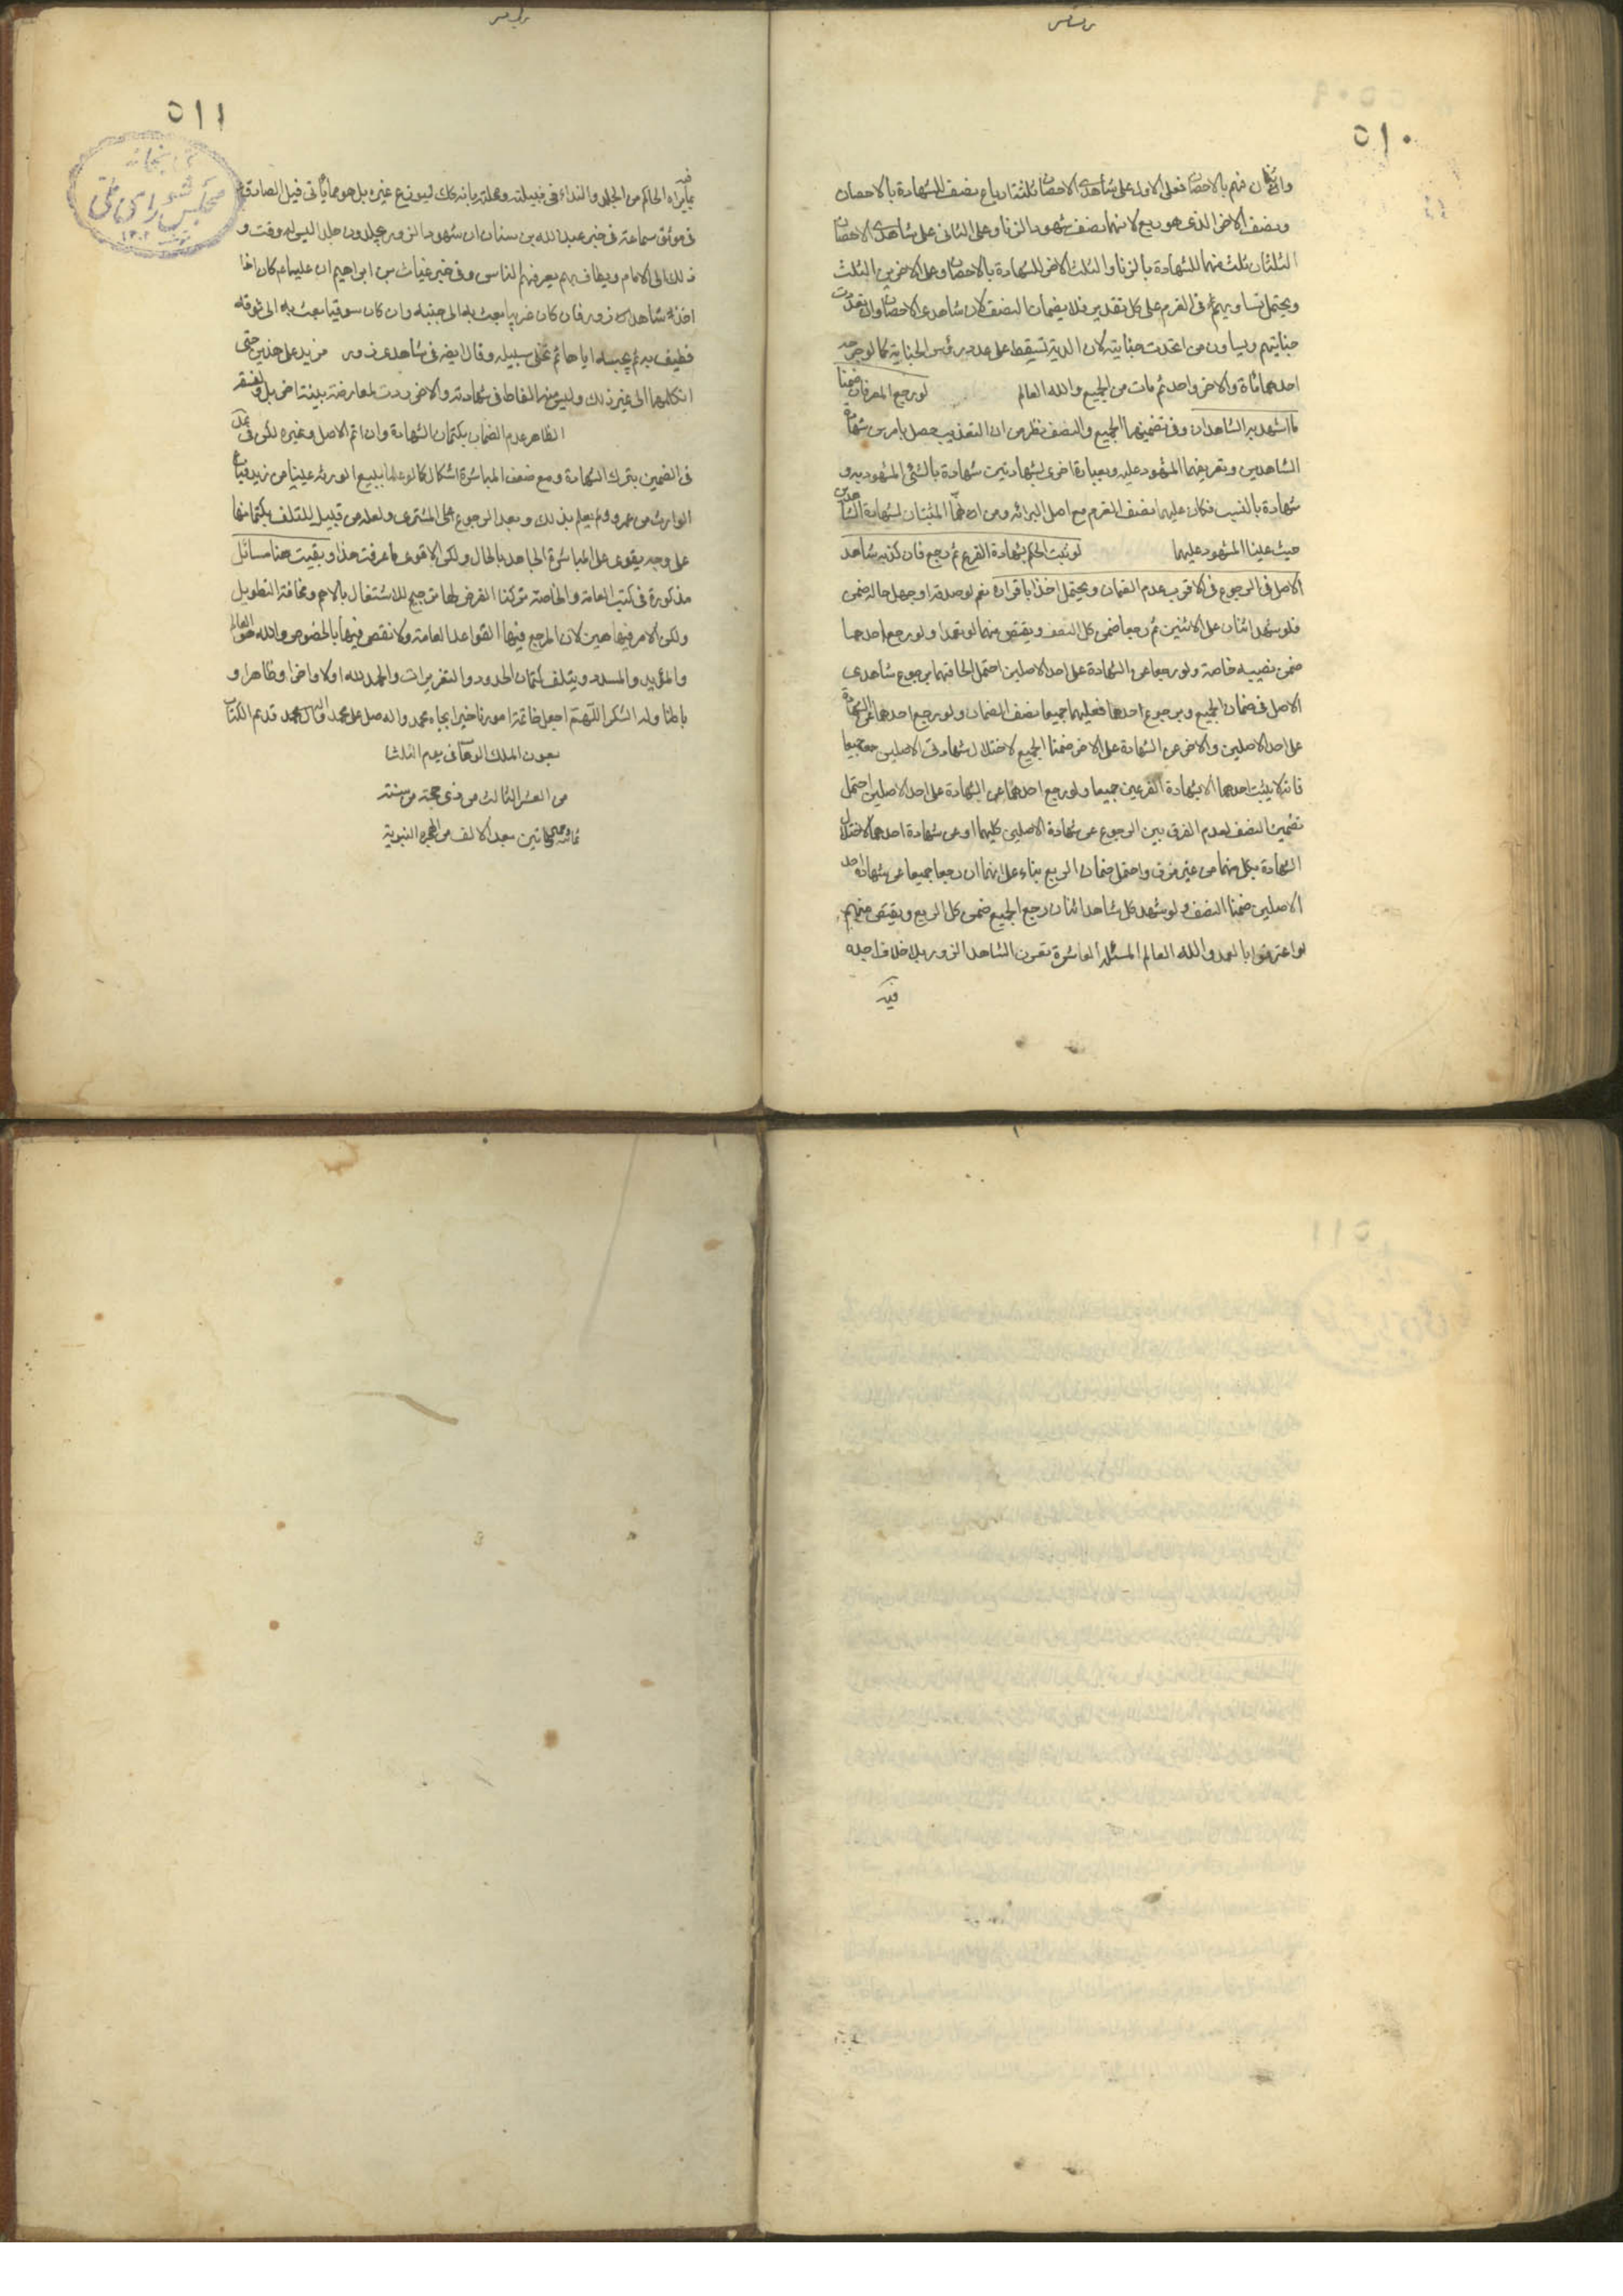 ٥١٠
وان كان منهم بالاحصان فعلى الاول على شاهدى الاحصان ثلثة ارباع نصف للشهادة بالاحصان
ونصف الاخر الذى هو ربع لانهما نصف شهود الزنا وعلى الثانى على شاهدى الاحصان
الثلثان ثلث منهما للشهادة بالزنا والثلث الاخر للشهادة بالاحصان وعلى الاخرين الثلث
ويحتمل تساويهم فى الغرم على كل تقدير فلا يضمان الا النصف لان شاهدى الاحصان وان تعددت
جنايتهم ويساون من اتحدت جنايته لان الدية تسقط على عدد رؤس الجناية كما لو جرحه
احدهما مأة والاخر واحد ثم مات من الجميع والله العالم لو رجع المعرفان ضمنا
ما شهد به الشاهدان وفى تضمينهما الجميع والنصف نظر من ان التعذيب حصل بامرين شهادة
الشاهدين وتعريفهما المشهود عليه وبعبارة اخرى بشهادتين شهادة بالشئ المشهود به و
شهادة بالنسب فكان عليهما نصف الغرم مع اصل البرائه ومن انهما المثبتان لشهادة الشاهدين
حيث عينا المشهود عليهما لو ثبت الحكم بشهادة الفرع ثم رجع فان كذبه شاهد
الاصل فى الرجوع فى الاقرب عدم الضمان ويحتمل اخذا باقراره نعم لو صدقه او جهل حاله ضمن
فلو شهد اثنان على الاثنين ثم رجعا ضمن كل النصف ويقتص منهما لو تعمدا ولو رجع احدهما
ضمن نصيبه خاصة ولو رجعا عن الشهادة على احد الاصلين احتمل الحاقهما برجوع شاهدى
الاصل فى ضمان الجميع وبرجوع احدهما فعليهما جميعا نصف الضمان ولو رجع احدهما عن الشهادة
على احد الاصلين والاخر عن الشهادة على الاخر ضمنا الجميع لاختلال شهادتى الاصلين معا جميعا
فانه لا يثبت احدهما الا بشهادة الفرعين جميعا ولو رجع احدهما عن الشهادة على احد الاصلين احتمل
تضمين النصف لعدم الفرق بين الرجوع عن شهادة الاصلين كليهما او عن شهادة احدهما لاختلال
الشهادة بكل منهما من غير فرق واحتمل ضمان الربع بناء على انهما ان رجعا جميعا عن شهادة احد
الاصلين ضمنا النصف ولو شهد كل شاهد اثنان رجع الجميع ضمن كل الربع ويقتص منهم
لو اعترفوا بالعمد والله العالم المسئلة العاشرة تعزير الشاهد الزور بلا خلاف اجده
فيه
٥١١
كتابخانه
مجلس شوراى ملى
بما يراه الحاكم من الجلد والنداء فى قبيلته ومحلته بانه كك ليرتدع غيره بل هو مما ياتى فيل الصادق
فى موثق سماعة فى خبر عبد الله بن سنان ان شهود الزور يجلدون جلدا ليس له وقت و
ذلك الى الامام ويطاف بهم يعرفهم الناس وفى خبر غياث بن ابراهيم ان عليا عم كان اذا
اخذ شاهد زور فان كان غريبا بعث به الى حيه وان كان سوقيا بعث به الى سوقه
فطيف به ثم يحبسه اياما ثم يخلى سبيله وقال ايضه فى شاهدى زور
انكلهما الى غير ذلك وليس منه الغالط فى شهادته والاخر ردت لمعارضة بينة اخرى
الظاهر عدم الضمان بكتمان الشهادة وان اثم الاصل وغيره لكن فى
فى التضمين بترك الشهادة ومع ضعف المباشرة اشكال كما لو علما ببيع المورث عينا من زيد فباع
الوارث من عمرو ولم يعلم بذلك وبعد الرجوع على المشترى ولعله من قبيل المتلف بكتمانهما
على وجه يقوى على المباشرة الجاهل بالحال ولكن الاقوى ما عرفت هذا وبقيت هنا مسائل
مذكورة فى كتب العامة والخاصة تركنا التعرض لها ترجيح للاشتغال بالاهم ومخافة التطويل
ولكن الامر فيها هين لان المرجع فيها القواعد العامة ولا نقص فيها بالخصوص والله هو العالم
والمؤيد والمسدد ويتلوه كتاب الحدود والتعزيرات والحمد لله اولا واخرا وظاهرا و
باطنا وله الشكر اللهم اجعل خاتمة امورنا خيرا بجاه محمد واله صل على محمد وال محمد قد تم الكتاب
بعون الملك الوهاب فى يوم الثلثا
من العشر الثالث من ذى حجة من سنته
بعد الالف من الهجرة النبوية
٥١١